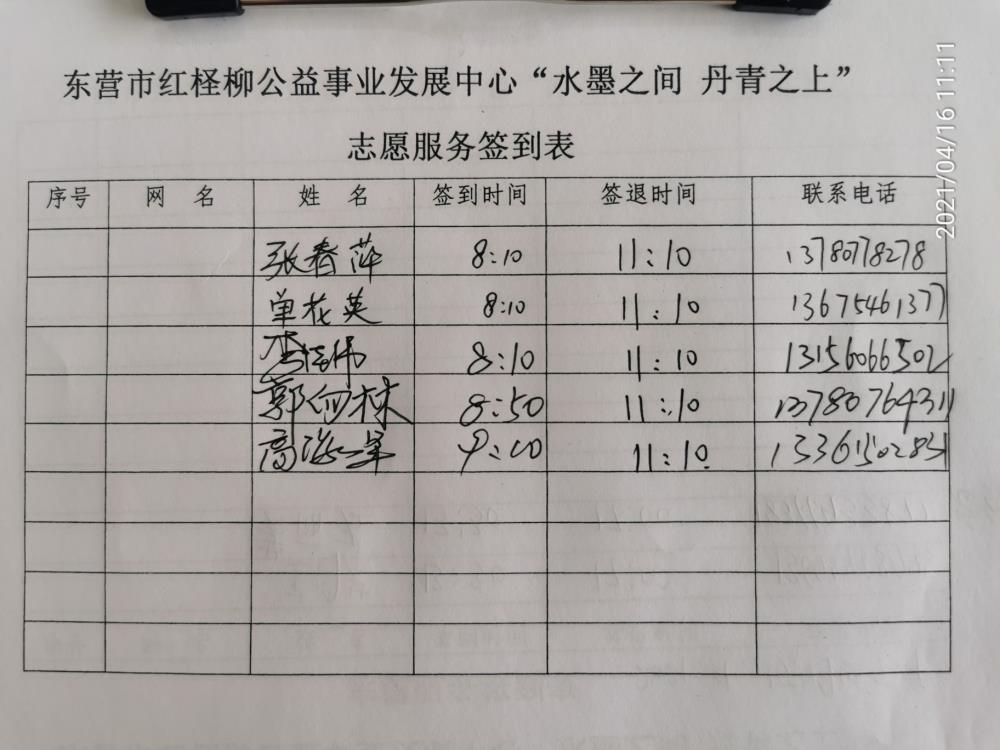 东营市红柽柳公益事业发展中心“水墨之间 丹青之上”
志愿服务签到表
序号 网 名 姓 名 签到时间 签退时间 联系电话
张春萍 8:10 11:10 13780778278
单花英 8:10 11:10 13675461377
8:10 11:10 13156066502
郭向林 8:50 11:10 13780764311
高海 9:00 11:10
2021/04/16 11:11